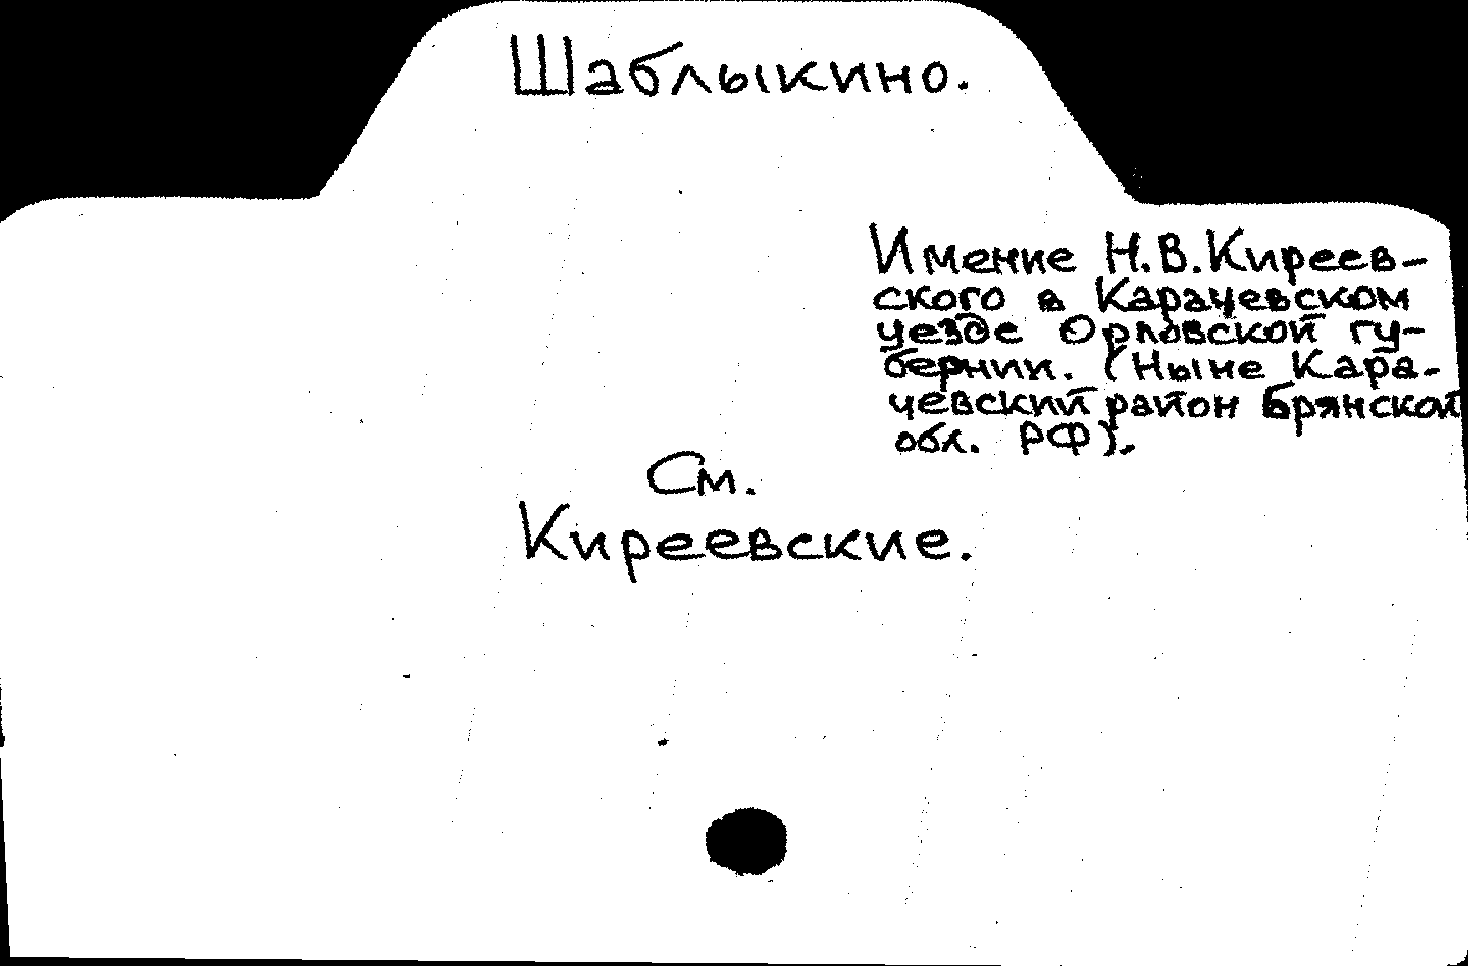 Шаблыкино.
Имение Н.В.Киреев-
ского в Карачевском
уезде Орловской гу-
бернии. (Ныне Кара-
чевский район Брянской
обл. РФ).
См.
Киреевские.